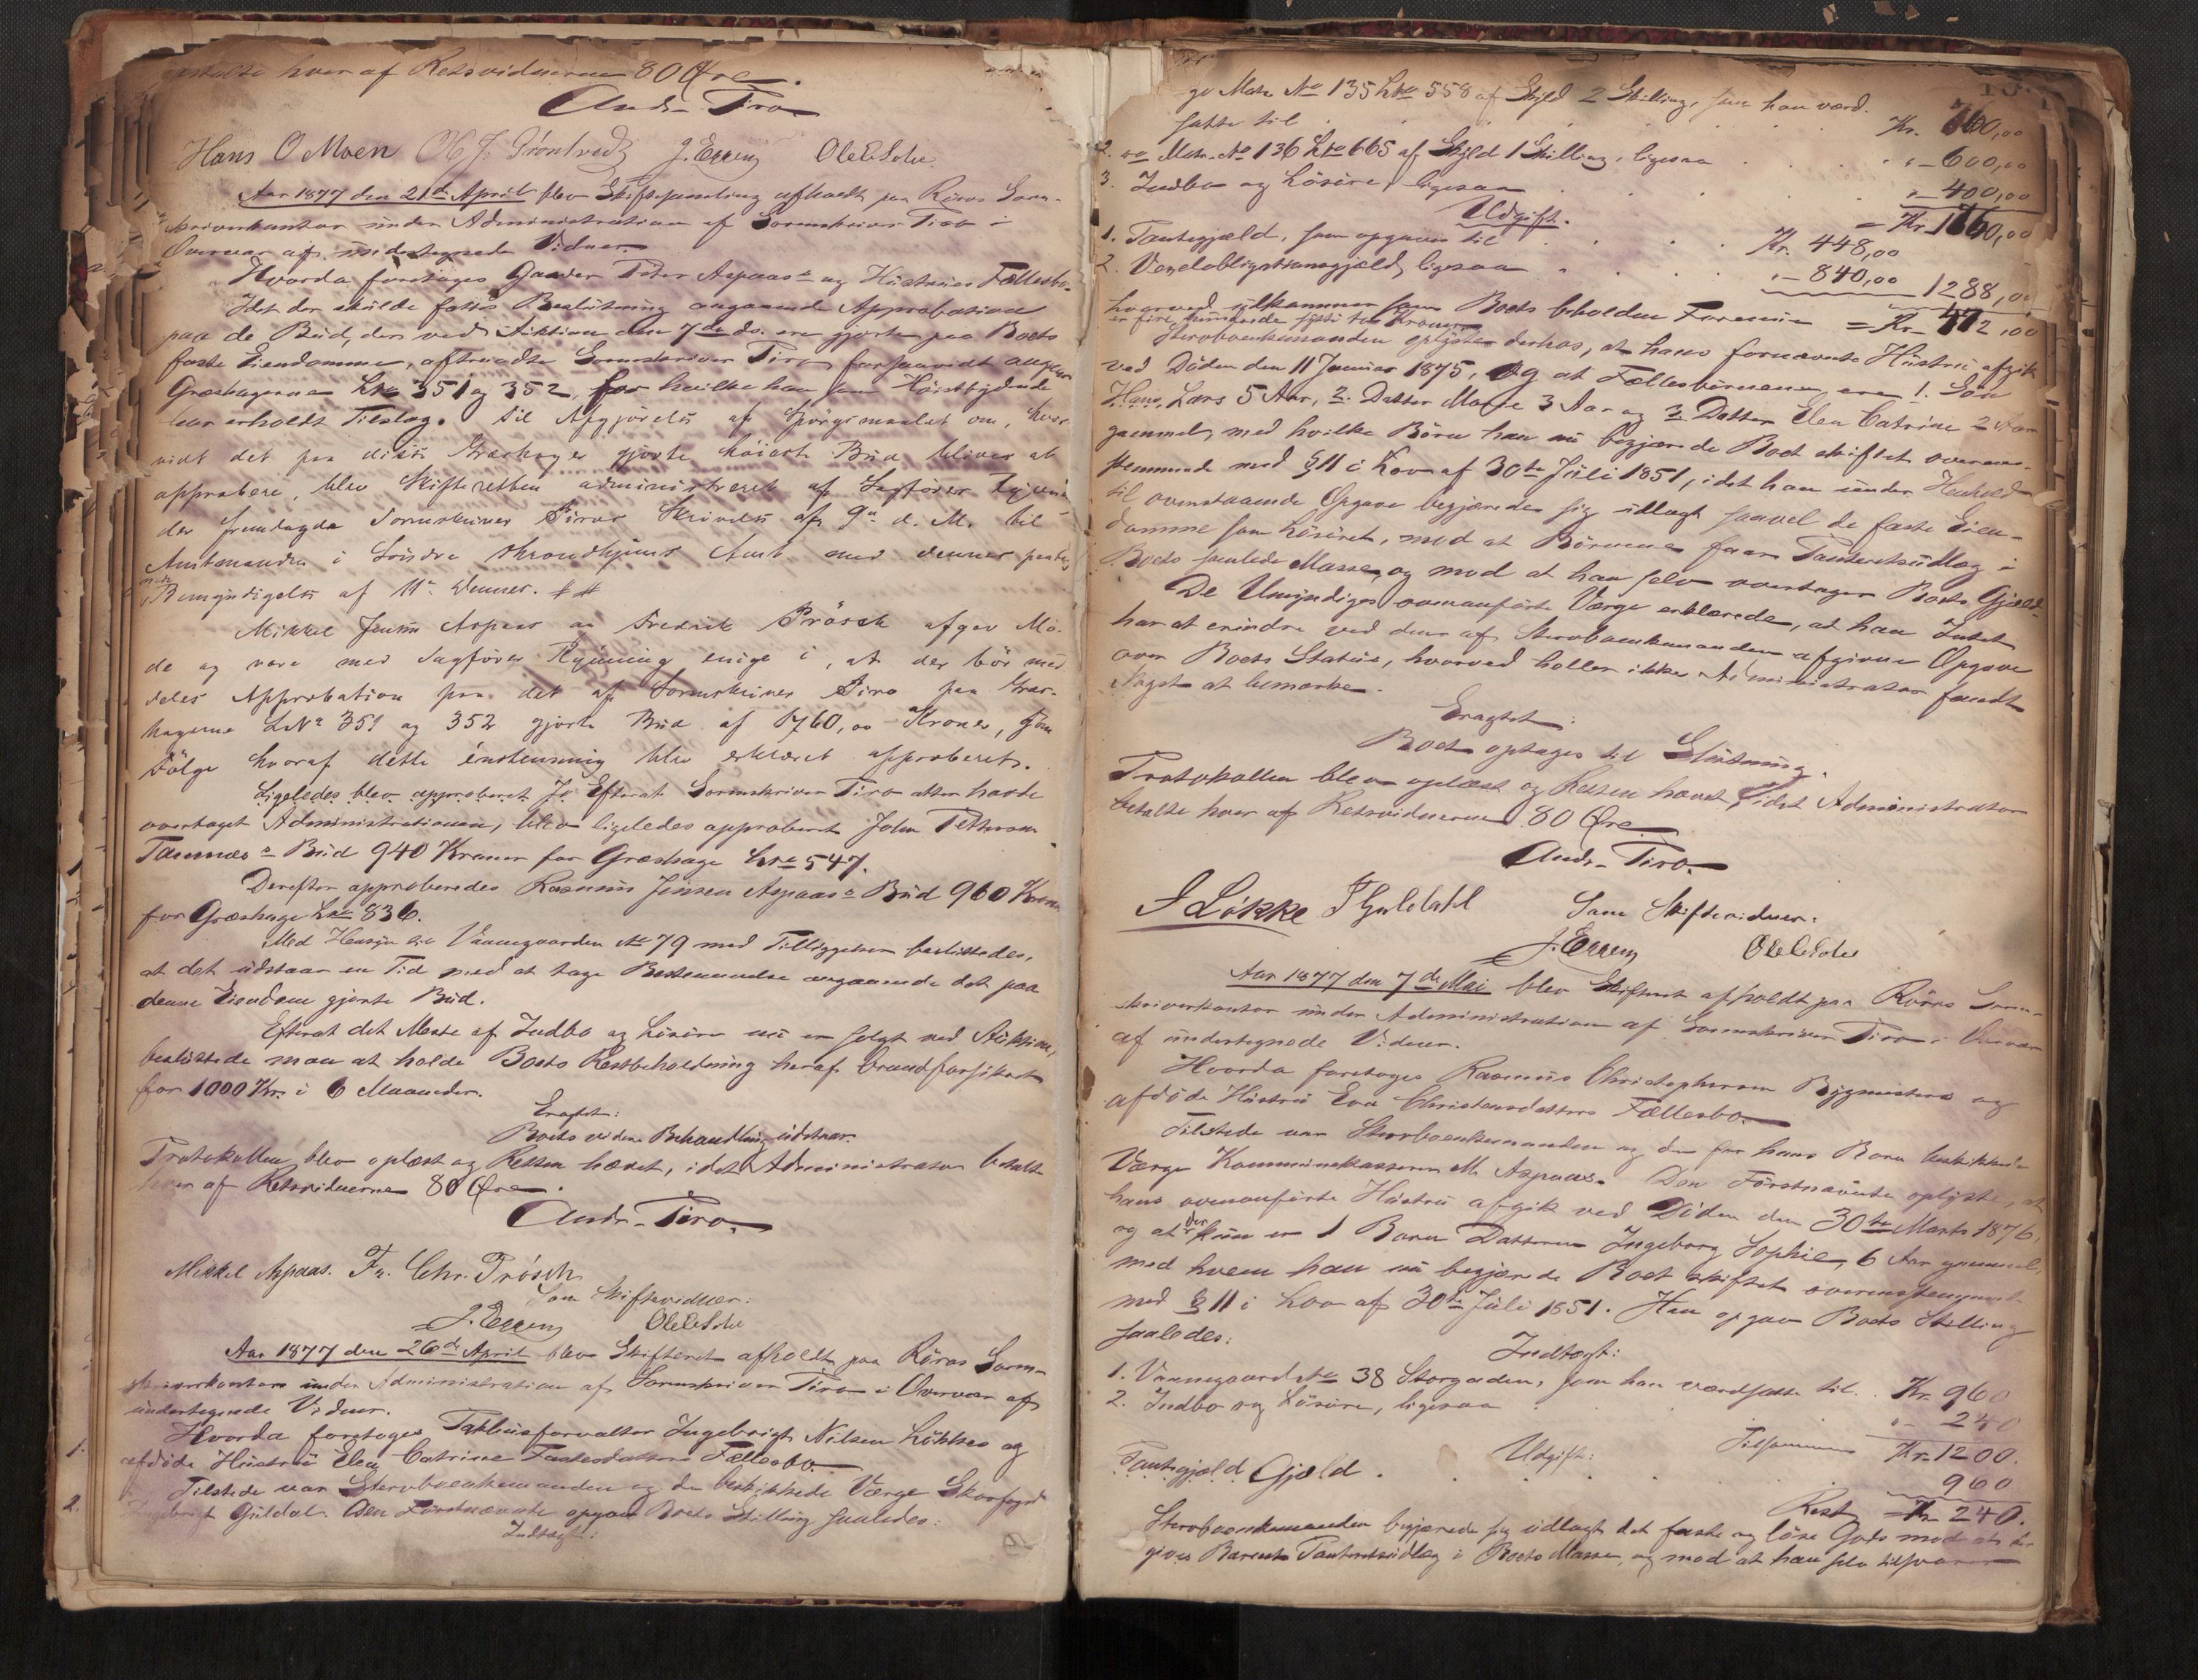 betalte hver af Retsvidnerne 80 Øre.
Andr. Tiro
Hans O Moen Ol. J. Grøntvedt J. Erzeng Ole E Sohu
Aar 1877 den 21de April blev Skiftesamling afholdt paa Röros Soren-
skriverkontor under Administration af Sorenskriver Tiro i
Overvær af undertegnede Vidner.
Hvorda foretoges Gaarder Peter Aspaas's og Hüstrües Fællesbo.
Idet der skulde fattes Beslütning angaaende Approbation
paa de Büd, der ved Aüktion den 7de ds. ere gjorte paa Boets
faste Eiendomme, aftraadte Sorenskriver Tiro forsaavidt angaar
Græshagerne Lno 351 og 352, for hvilke han som Höistbydende
har erholdt Tilslag. Til Afgjörelse af Spörgsmaalet om, hvor-
vidt det paa disse Græshager gjorte höieste Bud bliver at
approbere, blev Skifteretten administreret af Sagförer Ryjning
der fremlagde Sorenskriver Tiros Skrivelse af 9de d. M. til
Amtmanden i Söndre Throndhjems Amt med dennes paateg
nede Bemyndigelse af 11te dennes. ##
Mikkel Jensen Aspaas og Fredrik Prösch afgav Mö-
de og vare med Sagförer Ryjning enige i, at der bör med-
deles Approbation paa det af Sorenskriver Tiro paa Græs-
hagerne LNo 351 og 352 gjorte Bud af 1760,00 Kroner, som
Fölge hvoraf dette enstemmig blev erklæret approberet.
Ligeledes blev approberet Jo Efterat Sorenskriver Tiro atter havde
overtaget Administrationen, blev ligeledes approberet John Petterson
Tamnæs's Büd 940 Kroner for Græshage Lno 547.
Derefter approberedes Rasmüs Jensen Aspaas's Büd 960 Kroner
for Græshage Lno 836.
Med Hensyn til Vaanegaarden No 79 med Tilliggelser beslüttedes,
at det üdstaar en Tid med at tage Bestemmelse angaaende det paa
denne Eiendom gjorte Büd.
Efterat det Meste af Indbo og Lösöre nü er solgt ved Aüktion,
beslüttede man at holde Boets Restbeholdning heraf brandforsikret
for 1000 Kr. i 6 Maaneder.
Eragtet:
Boets videre Behandling üdstaar.
Protokollen blev oplæst og Retten hævet, idet Administrator betalte
hver af Retsvidnerne 80 Øre.
Andr. Tiro.
Mikkel Aspaas. Fr. Chr. Prösch
Som Skiftevidner:
J. Erzeng Ole E Sohu
Aar 1877 den 26de April blev Skifteret afholdt paa Röros Soren-
skriverkontor under Administration af Sorenskriver Tiro i Overvær af
ündertegnede Vidner.
Hvorda foretoges Pakhüsforvalter Ingebrigt Nilsen Løkkes og
afdöde Hüstrü Elen Catrine Fællesbo.
Tilstede var Sterboenkemanden og den beskikkede Værge Skovfoged
Ingebrigt Güldal. Den Förstnævnte opgav Boets Stilling saaledes:
Indtægt:
1.
2.
go Matr No 135 Lno 558 af Skyld 2 Skilling, som han værd-
satte til . . . . Kr. 760,00
2. do Matr. No 136 Lno 665 af Skyld 1 Skilling, ligesaa . . . "- 600,00
3. Indbo og Lösöre, ligesaa . . . "- 400,00
= Kr 1760,00
Udgift.
1. Pantegjæld, som opgaves til . . . Kr. 448,00
2. Vexelobligationsgjæld, ligesaa . . "- 840,00 1288,00
hvorved üdkommer som Boets beholdne Formüe = Kr. 472,00
er fire hündrede sytti to Kroner
Sterboenkemanden oplyste derhos, at hans fornævnte Hüstrü afgik
ved Döden den 11 Janüar 1875, og at Fællesbörnene ere 1. Sön
Hans, Lars 5 Aar, 2. Datter Marie 3 Aar og 3. Datter Elen Catrine 2 Aar
gammel, med hvilke Börn han nü begjærede Boet skiftet overens-
stemmende med § 11 i Lov af 30te Jüli 1851, idet han ünder Henhold
til ovenstaaende Opgave begjærede sig üdlagt saavel de faste Eien-
domme som Lösöret, mod at Börnene faar Panteretsüdlæg i
Boets samlede Masse, og mod at han selv overtager Boets Gjæld.
De Umyndiges ovenanförte Værge erklærede, at han Intet
har at erindre ved den af Sterboenkemanden afgivne Opgave
over Boets Status, hvorved heller ikke Administrator fandt
Noget at bemærke.
Eragtet:
Boet optages til Slütning.
Protokollen blev oplæst og Retten hævet, idet Administrator
betalte hver af Retsvidnerne 80 Øre.
Andr. Tiro.
I Løkke I Guldahl
Som Skiftevidner:
J. Erzeng Ole E Sohu
Aar 1877 den 7de Mai blev Skifteret afholdt paa Röros Soren-
skriverkontor ünder Administration af Sorenskriver Tiro i Overvær
af ündertegnede Vidner.
Hvorda foretoges Rasmüs Christophersen Bygmesters og
afdöde Hüstrü Eva Christensdatters Fællesbo.
Tilstede var Sterboenkemanden og den for hans Barn beskikkede
Værge Kommünekasserer M. Aspaas. Den Förstnævnte oplyste, at
hans ovenanförte Hüstrü afgik ved Döden den 30te Marts 1876,
og at der kün er 1 Barn Datteren Ingeborg Sophie, 6 Aar gammel,
med hvem han nü begjærede Boet skiftet overensstemmende
med § 11 i Lov af 30te Jüli 1851. Han opgav Boets Stilling
saaledes:
Indtægt:
1. Vaanegaard No 38 Storgaden, som han værdsatte til . . Kr. 960
2. Indbo og Lösöre, ligesaa . . . "- 240
Tilsammen Kr. 1200.
Udgift:
Pantegjæld Gjæld . . . . 960
Rest = Kr 240.
Sterboenkemanden begjærede sig üdlagt det faste og löse Gods mod at der
gives Barnet Panteretsüdlæg i Boets Masse, og mod at han selv tilsvarer